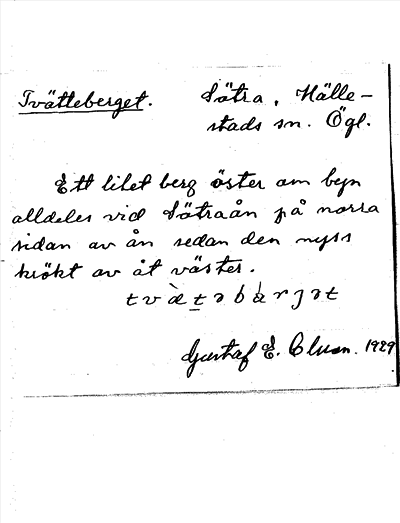 Tvätteberget. Sätra, Hälle-
stads sn. Ögl.
Ett litet berg öster om byn
alldeles vid Sätraån på norra
sidan av ån sedan den nyss
krökt av åt väster.
Gustaf E. Cluon. 1929